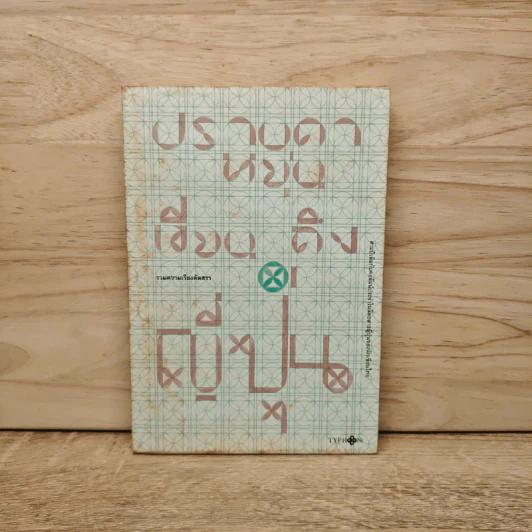 ปราบดา
หยุ่น
เขียน ถึง
รวมความเรียงคัดสรร
ญี่ปุ่น
TYPHOON